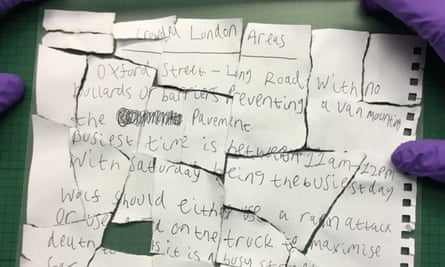 Crowded London Areas
Oxford Street - Long Road, With no
bollards or barriers Preventing a van mounting
the Pavement
Busiest time is between 11am-12pm
With Saturday being the busiest day
Wolf Should either use a ram attack
Or use on the truck to maximise
death it is a busy street